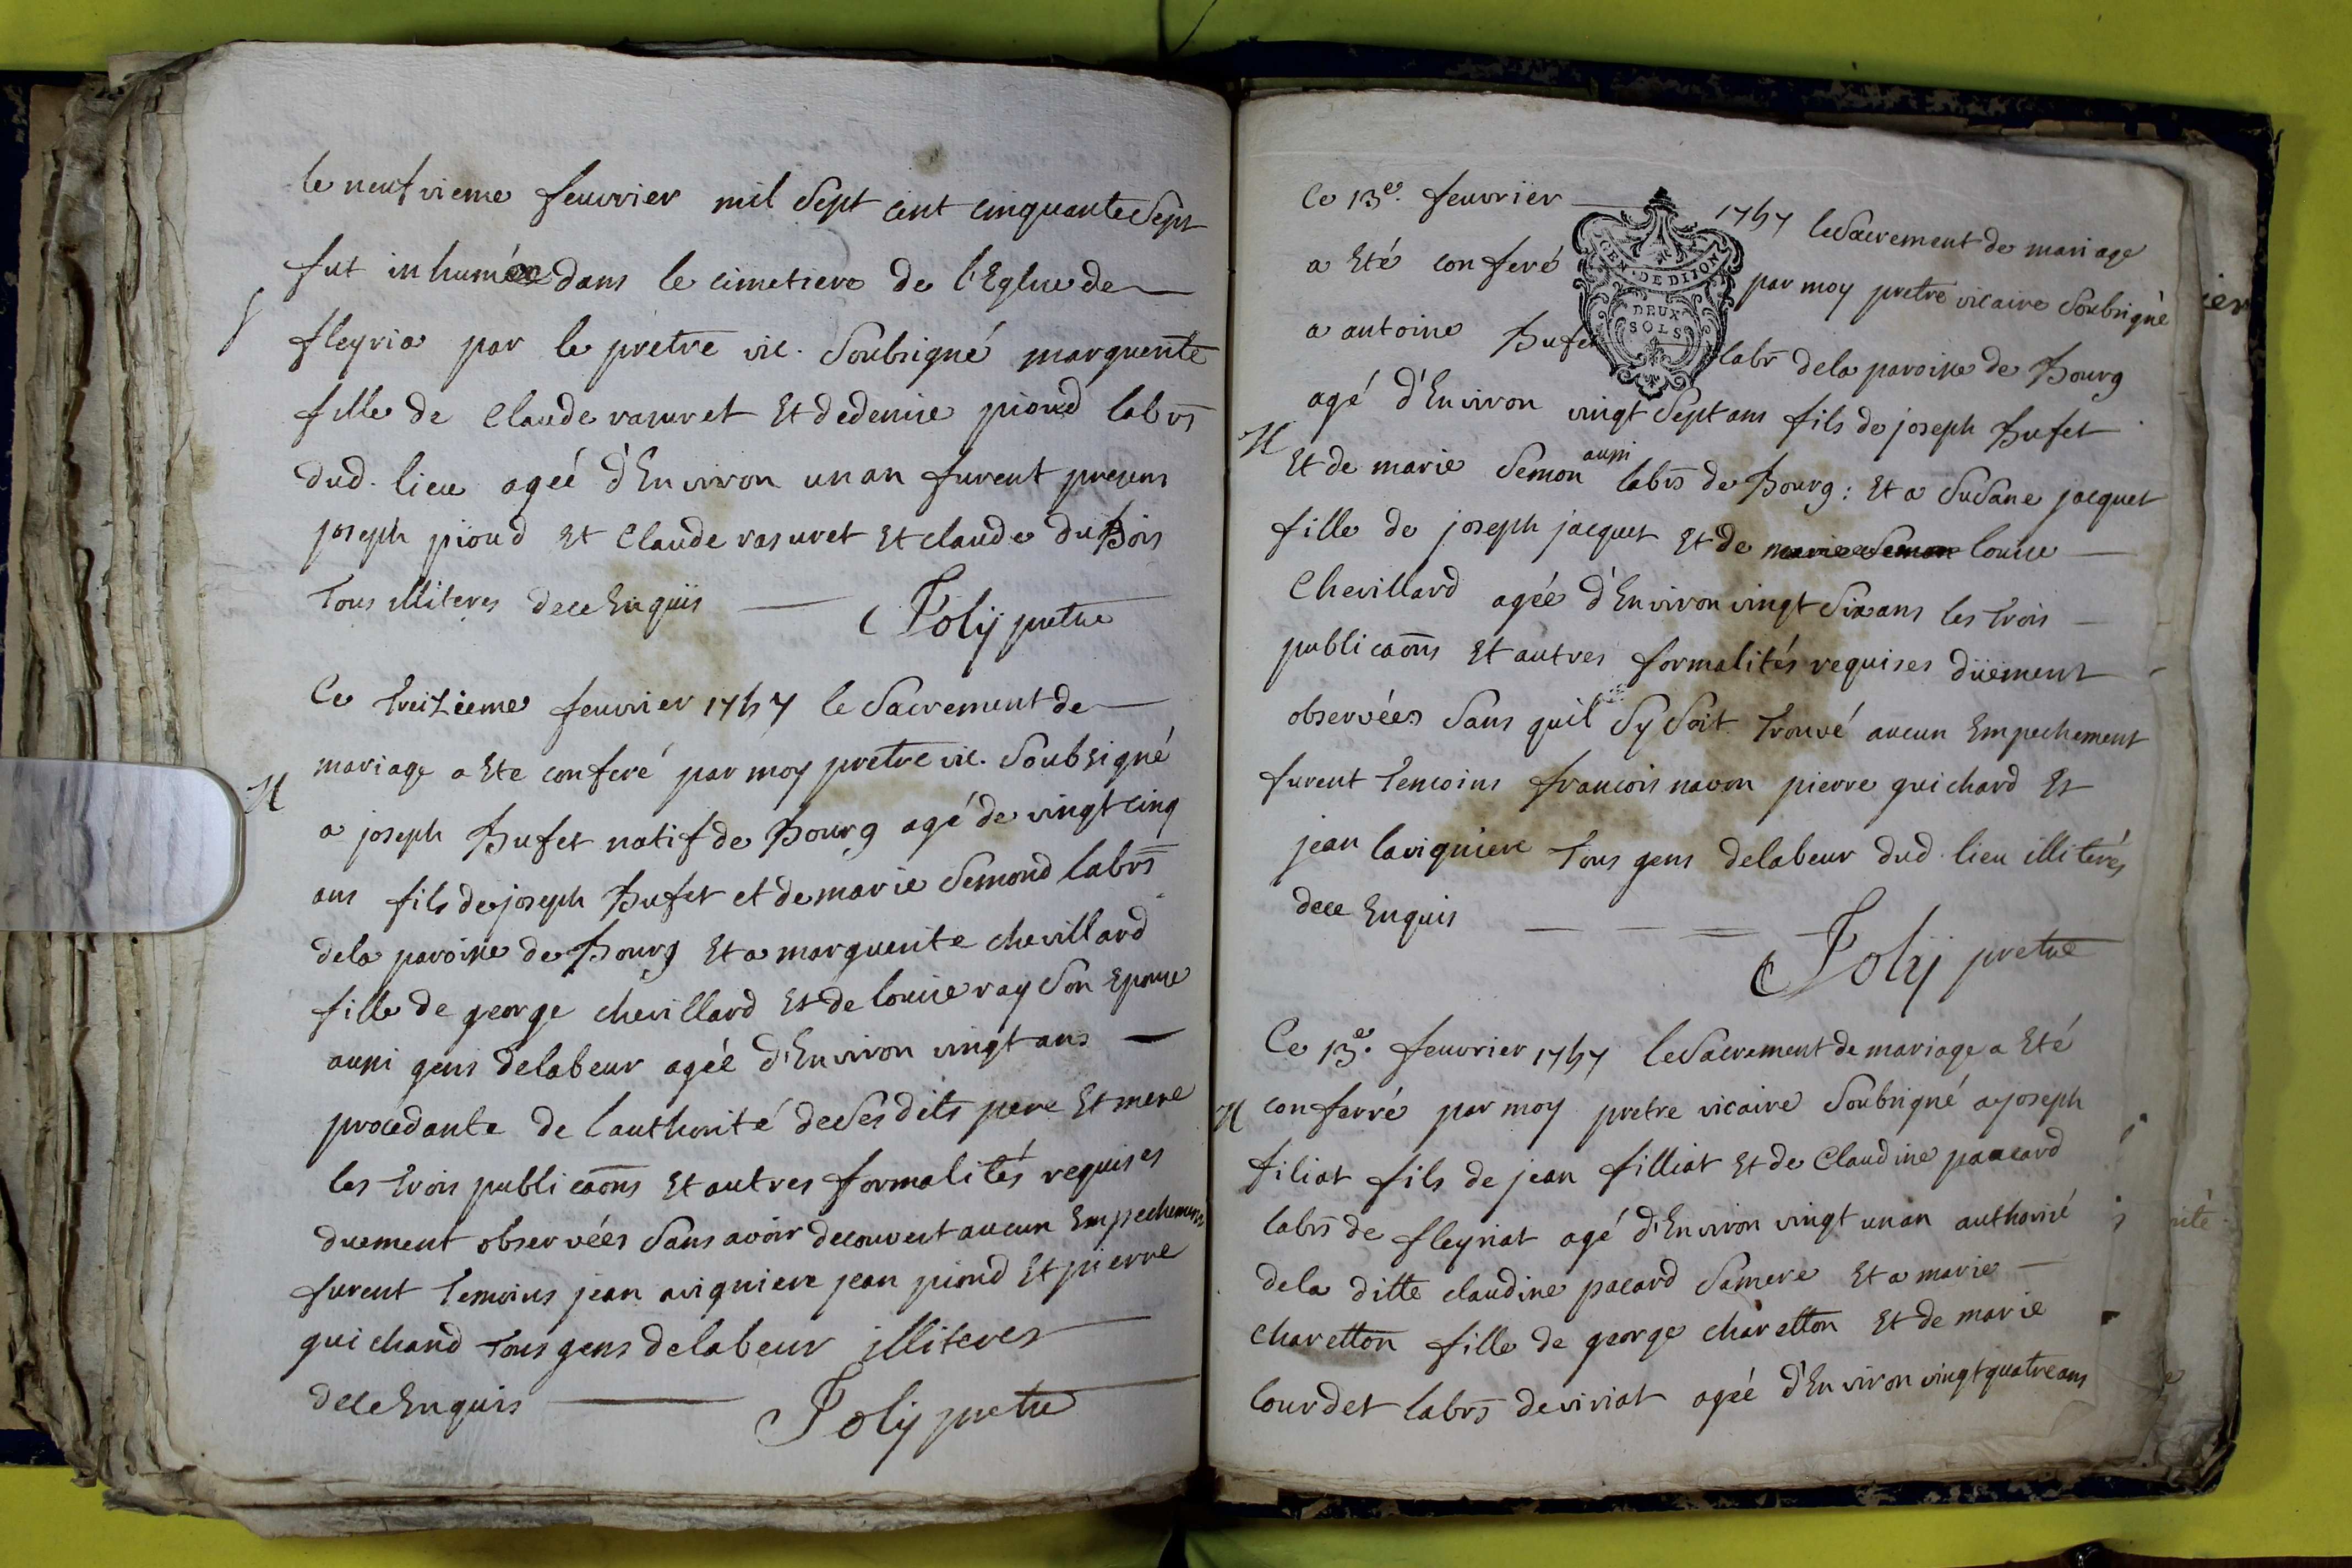 le neufvieme feuvrier mil Sept cent cinquante Sept
fut inhumée dans le cimetiere de l'Eglise de
fleyria par le prêtre vic. Soubsigné marguerite
fille de Claude rasuret Et de denise pioud labrs
dud. lieu ageé d'Environ un an furent presens
joseph pioud Et Claude rasuret Et claude du Bois
tous illiteres de ce Enquis Poly pretre
Ce treizieme feuvrier 1757 le Sacrement de
mariage a Ete conferé par moy pretre vic. Soubsigné
H
a joseph Bufet natif de Bourg agé de vingt cinq
ans fils de joseph Bufet et de marie Semond labrs
de la paroisse de Bourg Et a marguerite chevillard
fille de george chevillard Et de louise ray Son Epouse
aussi gens de labeur ageé d'Environ vingt ans
procedante de l'authorité de Ses dits pere Et mere
les trois publicaons Et autres formalités requises
duement observées Sans avoir decouvert aucun Empechement
furent temoins jean avigniere jean pioud Et pierre
guichard tous gens de labeur illiteres
de ce Enquis Poly pretre
Ce 13e. feuvrier 1757 le Sacrement de mariage
a Eté conferé par moy pretre vicaire Soubsigné
GEN. DE DIJON
DEUX
SOLS
a antoine Bufet labr de la paroisse de Bourg
agé d'Environ vingt Sept ans fils de joseph Bufet
H
Et de marie Semon aussi labrs de Bourg : Et a Susane jacquet
fille de joseph jacquet Et de marie Semon louise
Chevillard agée d'Environ vingt Six ans les trois
publicaons Et autres formalités requises düement
observées Sans quil Sy Soit trouvé aucun Empechement
furent temoins francois navon pierre guichard Et
jean lavigniere tous gens de labeur dud. lieu illiterés
de ce Enquis
Poly pretre
Ce 13e. feuvrier 1757 le Sacrement de mariage a Eté
H conferré par moy pretre vicaire Soubsigné a joseph
filiat fils de jean filliat Et de Claudine paacard
labrs de fleyriat agé d'Environ vingt un an authorisé
de la ditte claudine pacard Sa mere Et a marie
charetton fille de george charetton Et de marie
lourdet labrs de viriat ageé d'Environ vingt quatre ans